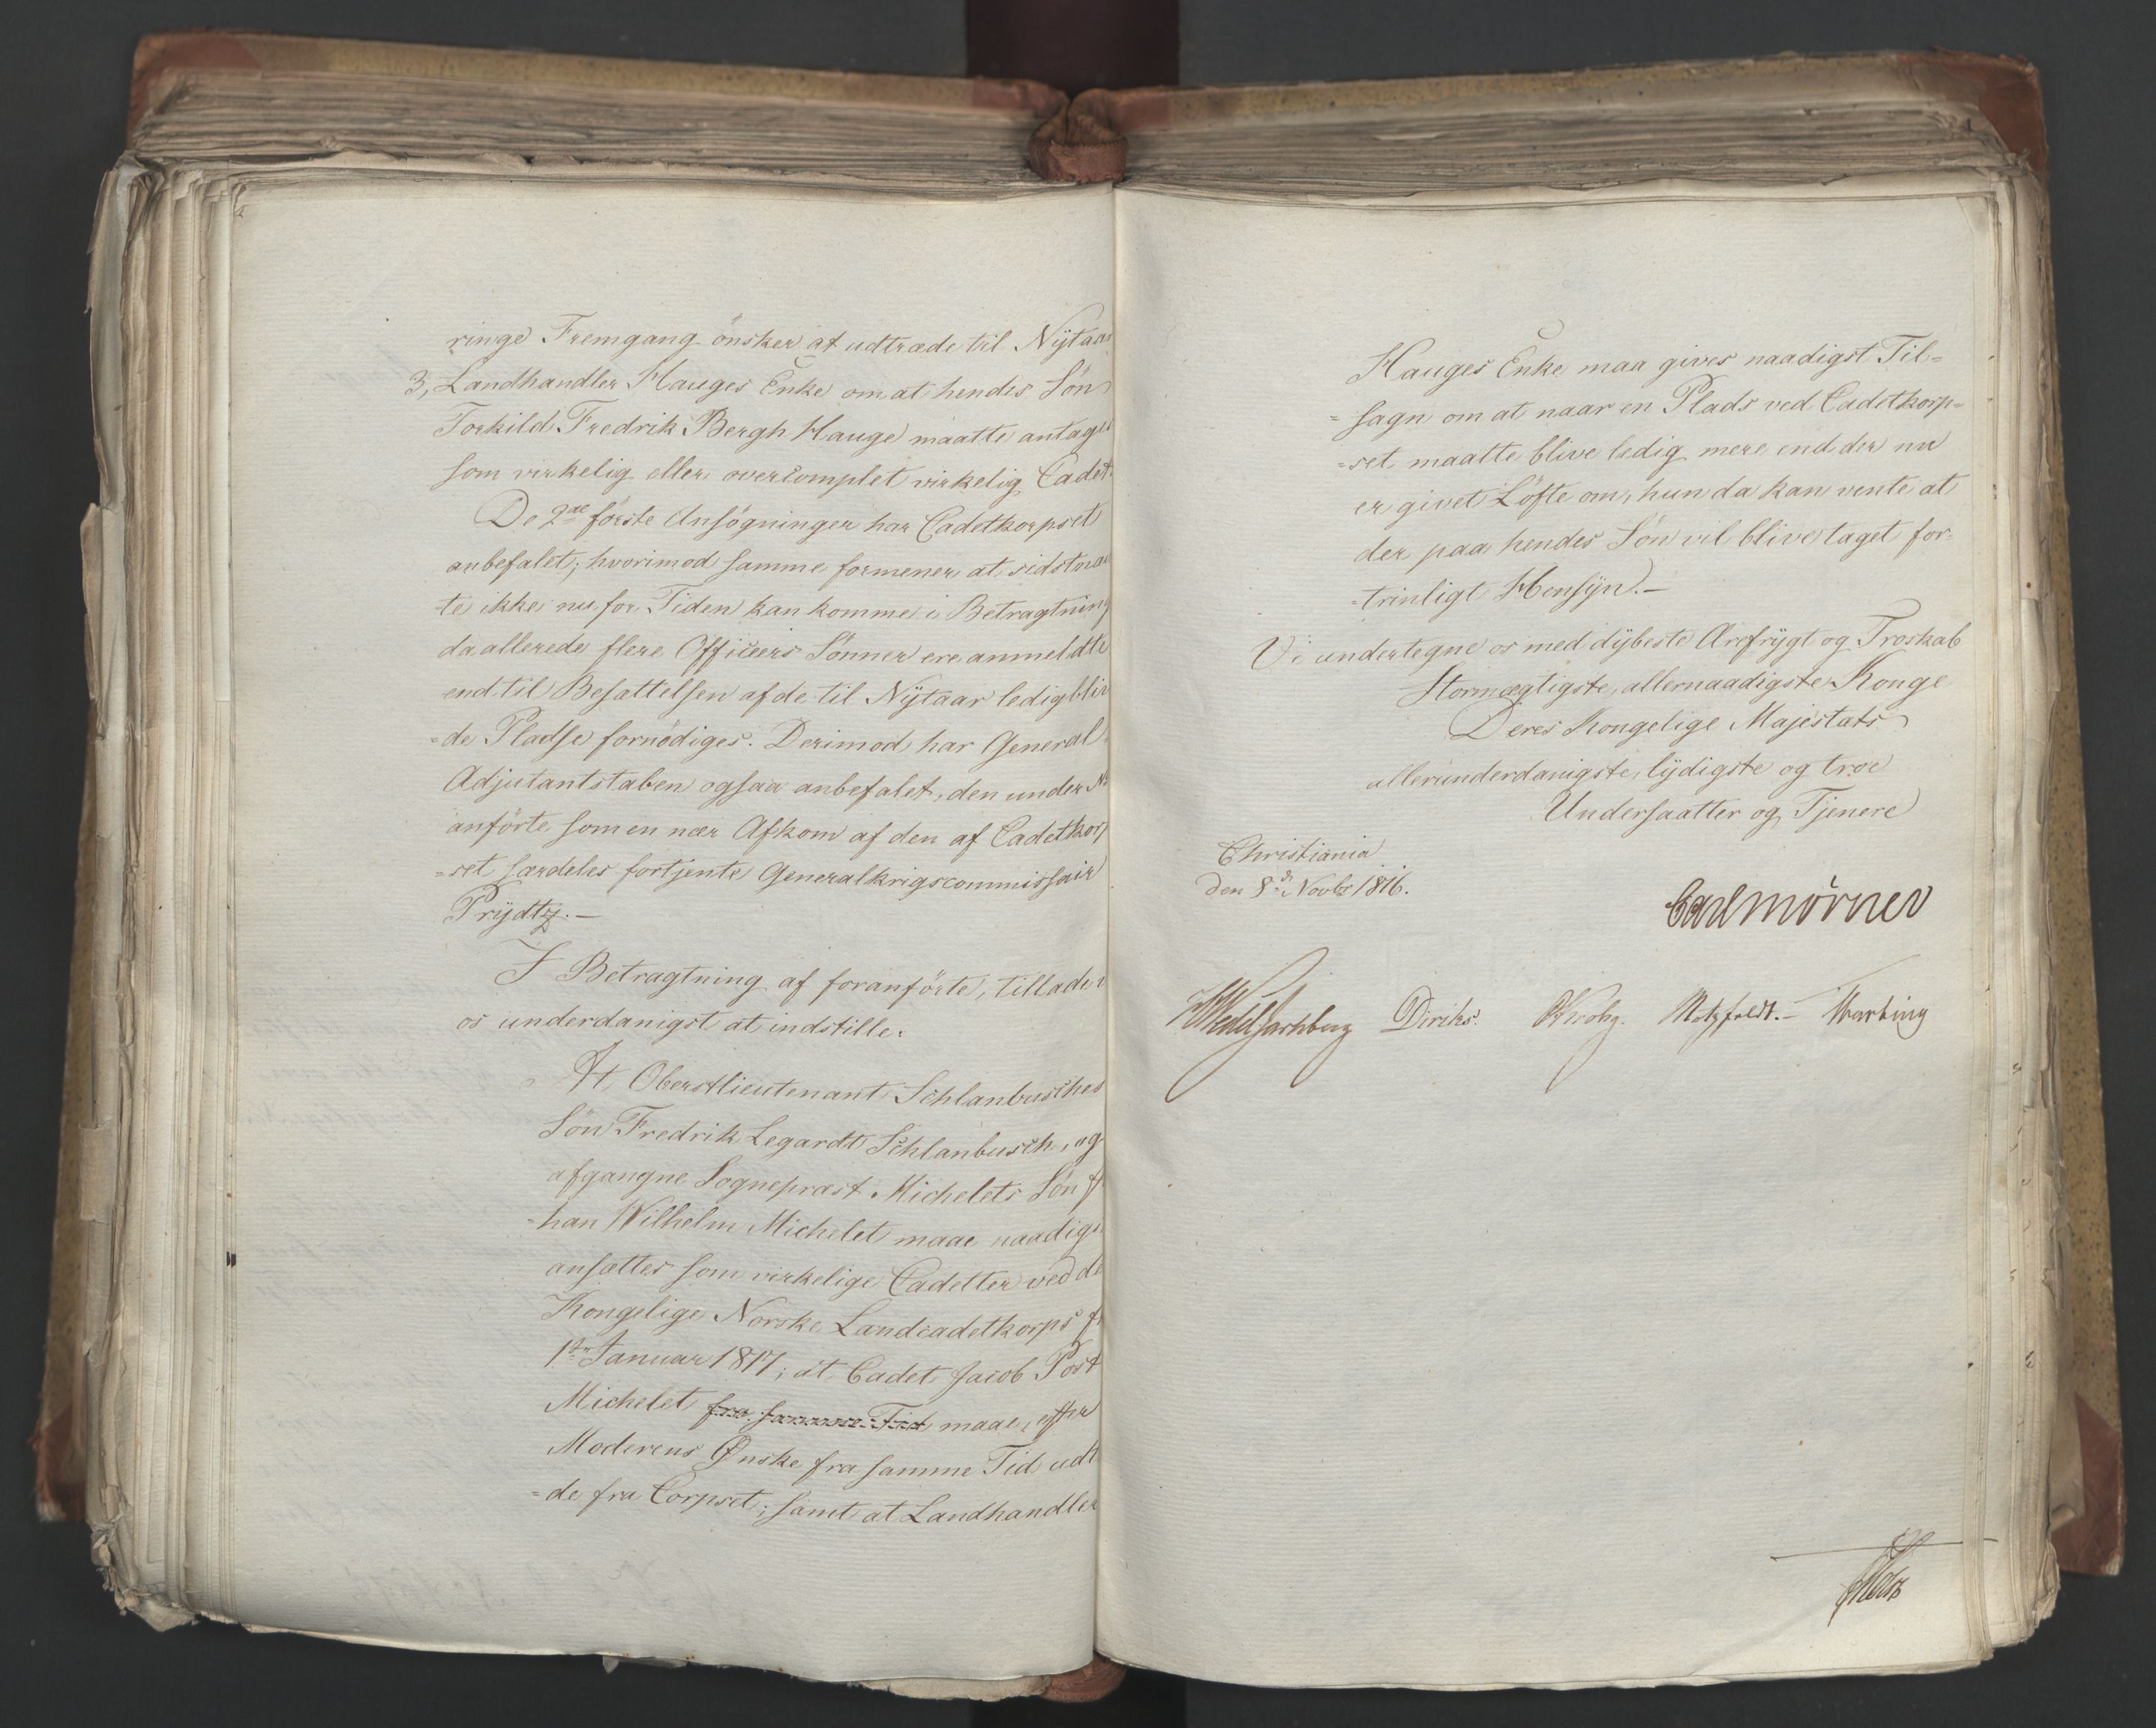 ringe Fremgang önsker at udtræde til Nÿtaar
3, Landhandler Hauges Enke om at hendes Sön
Torkild Fredrik Bergh Hauge maatte antages
som virkelig eller overcomplet virkelig Cadet.
De 2de förste Ansögninger har Cadetkorpset
anbefalet; hvorimod samme formener at sidstnæv
te ikke nu for Tiden kan komme i Betragtning
da allerede flere Officeers Sönner ere anmeldte
end til Besættelsen af de til Nÿtaar ledigbliv
=de Pladse fornödiges. Derimod har General
Adjutantstaben ogsaa anbefalet, den under No
anförte som en nær Afkom af den af Cadetkorp
=set særdeles fortjente Generalkrigscommissair
Prÿdtz.—
I Betragtning af foranförte, tillade vi
os underdanigst at indstille:
At Oberstlieutenant Schlanbusches
Sön Fredrik Legardt Schlanbusch, og
afgangne Sognepræst Michelets Sön Jo
=han Wilhelm Michelet maae naadigst
ansættes som virkelige Cadetter ved det
Kongelige Norske Landcadetkorps fra
1ste Januar 1817; at Cadet Jacob Post
Michelet fra samme Tid maae, efter
Moderens Ønske fra samme Tid udtræ
=de fra Corpset; samt at Landhandler
Hauges Enke maa gives naadigst Til=
=sagn om at naar en Plads ved Cadetkorp=
=set maatte blive ledig mere end der nu
er givet Löfte om, hun da kan vente at
der paa hendes Sön vil blive taget for=
=trinligt Hensÿn.—
Vi undertegne os med dÿbeste Ærefrÿgt og Troskab
Stormægtigste, allernaadigste Konge
Deres Kongelige Majestæts
allerunderdanigste, lÿdigste og troe
Undersaatter og Tjenere
Christiania
den 8de Novbr 1816.
Carl Mörner
HWedel Jarlsberg Diriks. CKrohg. Motzfeldt.— Th